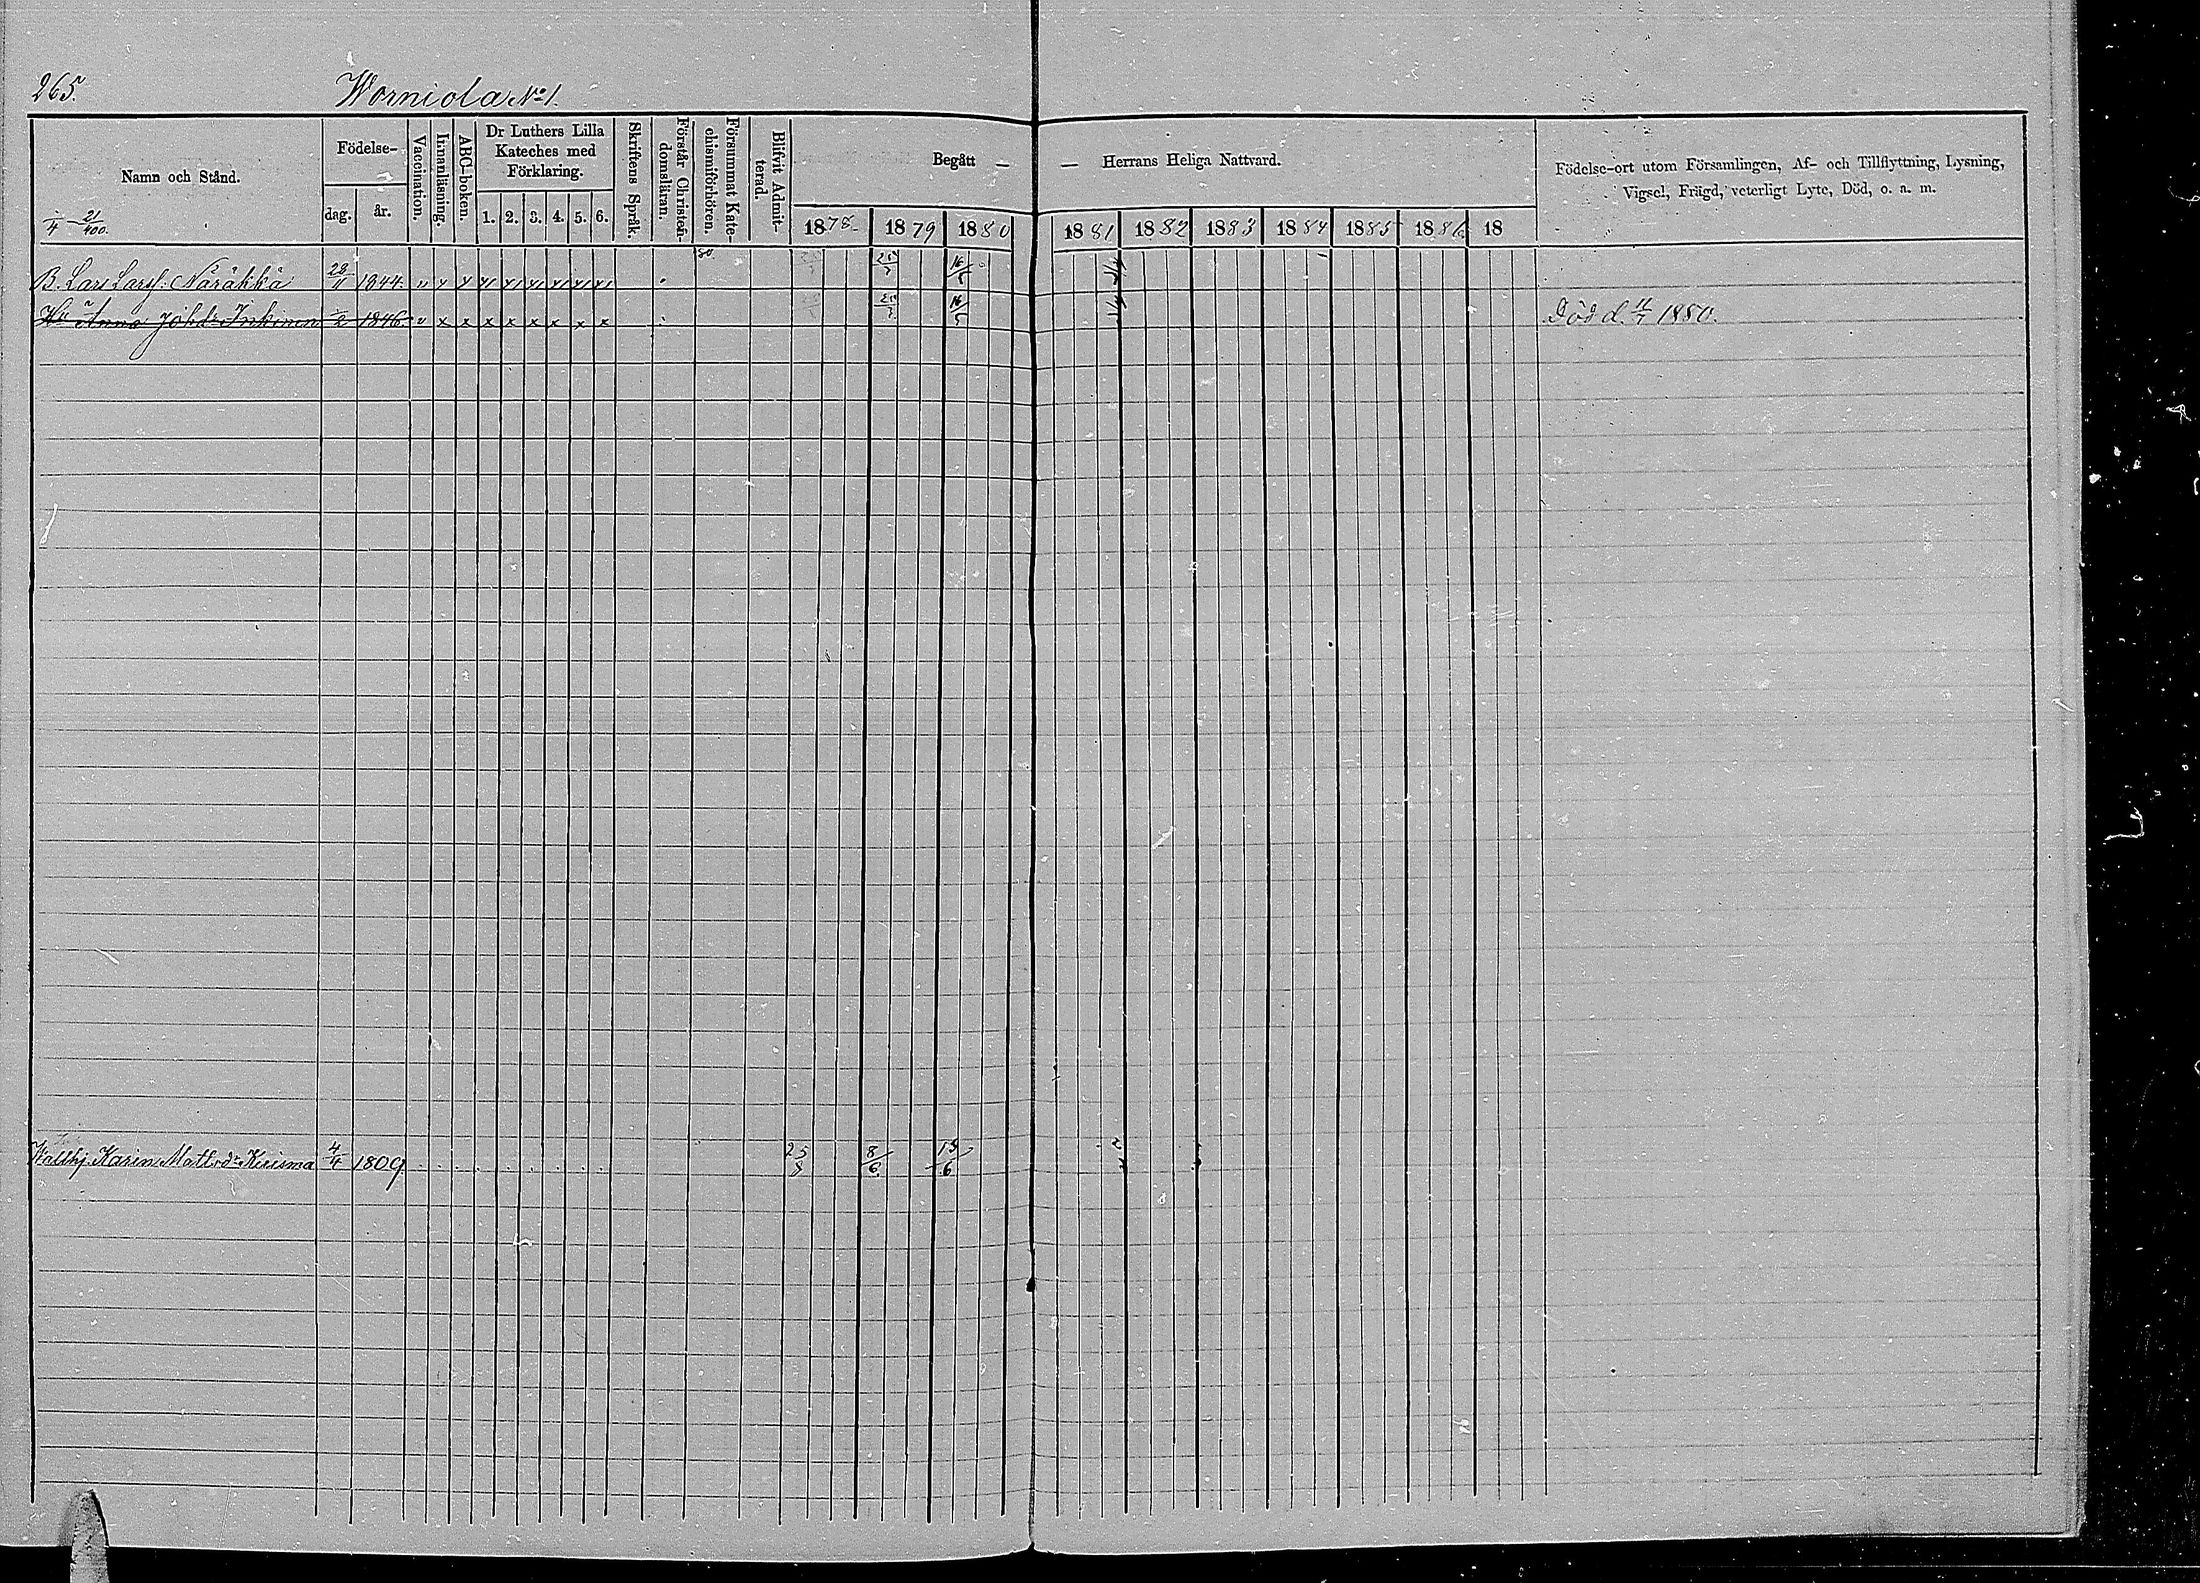 265.
Worniola No 1.
Namn och Stånd.
Födelse-
dag.
år.
Vaccination.
Innanläsning.
ABC-boken.
Dr Luthers Lilla
Kateches med
Förklaring.
1. 2. 3. 4. 5. 6.
Skriftens Språk.
Förstår Christen-
domsläran.
Försummat Kate-
chismiförhören.
Blifvit Admit-
terad.
Begått — — Herrans Heliga Nattvard.
1878 1879 1880 1881 1882 1883 1884 1885 1886 18
Födelse-ort utom Församlingen, Af- och Tillflyttning, Lysning,
Vigsel, Frägd, veterligt Lyte, Död, o. a. m.
1/4 21/400.
B. Lars Larss. Näräkkä 28/11 1844. 80 25/ 16/5
Hu Anna Joh.dr Inkinen 1/2 1846. x x x x x x x x 25/ 16/5 Död d. 1880.
Karin Matt.dr Kuisma 4/4 1809 25/8 8/6 13/6